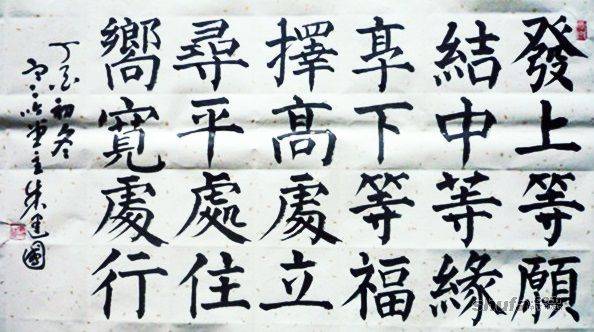 發上等願
結中等緣
享下等福
擇高處立
尋平處住
嚮寬處行
丁亥初冬
堂主朱建國
shufa